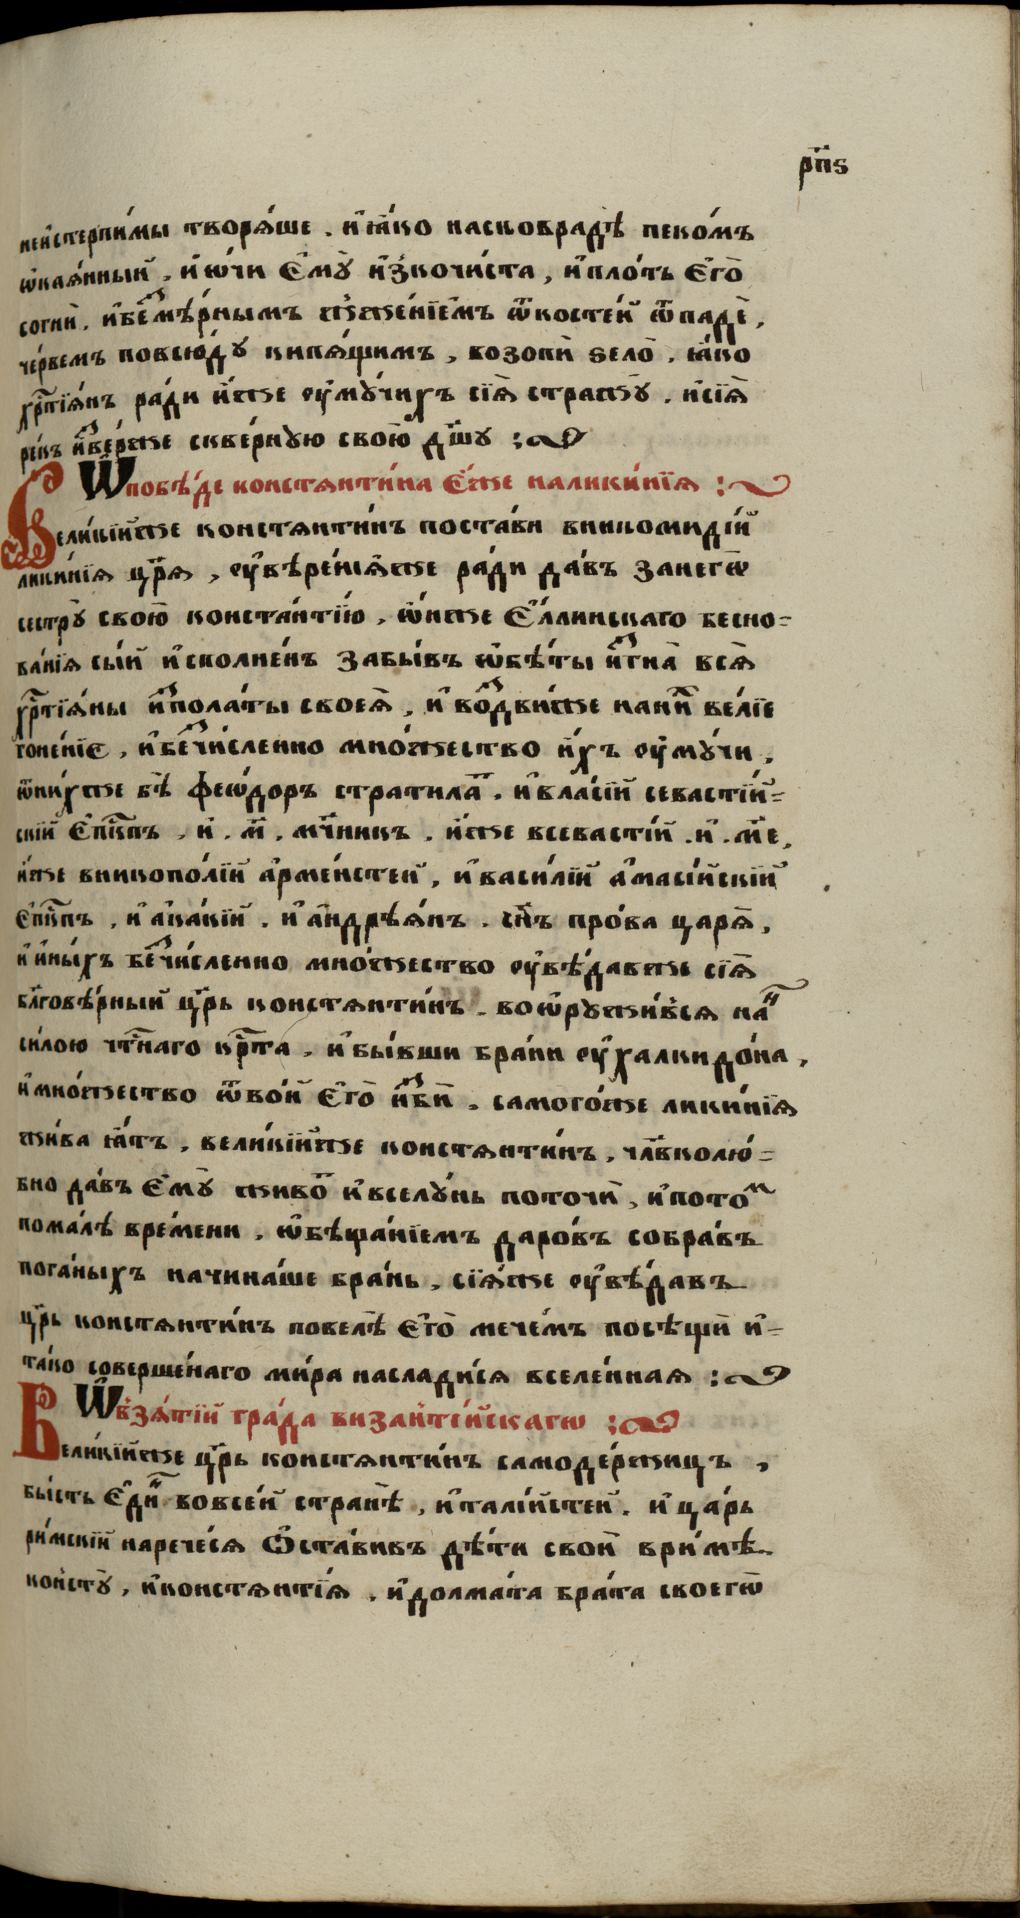 рп҃ѕ
неи҆стерпи́мы творѧ́ше . и҆ ꙗ҆́ко насковрадѣ̀ пеко́мъ
ѡ҆каѧ́нный , и҆ ѡ҆́чи є҆мꙋ̀ и҆з̾кочи́ста , и҆ пло́ть є҆го̀
согнѝ . и҆ беⷥмѣ́рнымъ жже́нїемъ ѿкосте́й ѿпадѐ ,
че́рвемъ повсю́дꙋ кипѧ́щимъ , возопѝ ѕело̀ . ꙗ҆́ко
хрⷭ҇тїѧ́нъ ра́ди и҆́же ᲂу҆мꙋ́чихъ сїѧ̀ стра́ждꙋ . и҆ сїѧ̀
ре́къ и҆ⷥве́рже скве́рнꙋю свою̀ дш҃ꙋ :
Ѡ҆ побѣ́де констѧнти́на є҆́же наликинїѧ :
Вели́кїйже констѧнти́нъ поста́ви вникомиді́й
лики́нїѧ цр҃ѧ , ᲂу҆вѣре́нїѧже ра́ди да́въ занегѡ̀
сестрꙋ̀ свою̀ конста́нтїю , ѡ҆́нже є҆́ллинскаго бесно-
ва́нїѧ сы́й и҆спо́лненъ забы́въ ѡ҆бѣ́ты и҆ⷥгна̀ всѧ̀
хрⷭ҇тїѧ́ны и҆ⷥпола́ты своеѧ̀ , и҆ воⷥдви́же нани́х ве́лїе
гоне́нїе , и҆ беⷥчи́сленно мно́жество и҆́хъ ᲂу҆мꙋ́чи ,
ѿни́хже бѣ̀ феѡ́доръ стратила́т . и҆ вла́сїй севасті́й-
скїй є҆пⷭ҇кпъ , и҆ . м҃ . мч҃никъ . и҆́же всевасті́й . и҆ . м҃е ,
и҆́же вникопо́лїй а҆рме́йстей , и҆ васи́лїй а҆масі́йскїй
є҆пⷭ҇кпъ , и҆ а҆ка́кїй . и҆ а҆ндреѧ́нъ . сн҃ъ про́ва царѧ̀ ,
и҆ и҆ны́хъ беⷥчи́сленно мно́жество ᲂу҆вѣ́давже сїѧ̀
бл҃говѣ́рный цр҃ь констѧнти́нъ . воѡ҆рꙋжи́всѧ наⷩ҇
си́лою чⷭ҇тнаго крⷭ҇та , и҆ бы́вши бра́ни ᲂу҆ халкидо́на ,
и҆ мно́жество ѿво́й є҆го̀ и҆ⷥбѝ . самого́же лики́нїѧ
жи́ва ꙗ҆́тъ , вели́кїйже констѧнти́нъ , чл҃вколю́-
бно да́въ є҆мꙋ̀ живо́т и҆ вселꙋ́нь поточѝ , и҆ потоⷨ
пома́лѣ вре́мени , ѡ҆бѣща́нїемъ даро́въ собра́въ
пога́ныхъ начина́ше бра́нь , сїѧ́же ᲂу҆вѣ́давъ
цр҃ь констѧнти́нъ повелѣ̀ є҆го̀ мече́мъ посѣщѝ и҆-
та́ко соверше́наго ми́ра наслади́сѧ вселе́ннаѧ :
Ѡ҆ в̾зѧ́тїй гра́да византі́йскагѡ :
Вели́кїйже цр҃ь констѧнти́нъ самоде́ржицъ ,
бы́сть є҆ди́ⷩ вовсе́й странѣ̀ , и҆талі́йстей . и҆ ца́рь
ри́мскїй нарече́сѧ ѡ҆ста́вивъ дѣ́ти своѝ в ри́мѣ
ко́нстꙋ , и҆ констѧ́нтїѧ . и҆ долма́та бра́та своегѡ̀